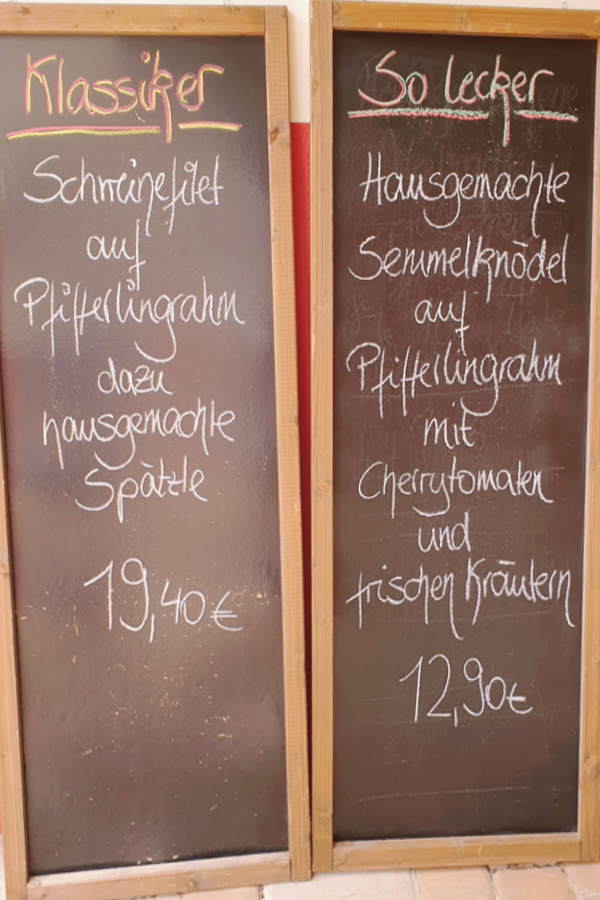 Klassiker
Schweinefilet
auf
Pfifferlingrahm
dazu
hausgemachte
Spätzle
19,40€
So lecker
Hausgemachte
Semmelknödel
auf
Pfifferlingrahm
mit
Cherrytomaten
und
frischen Kräutern
12,90€